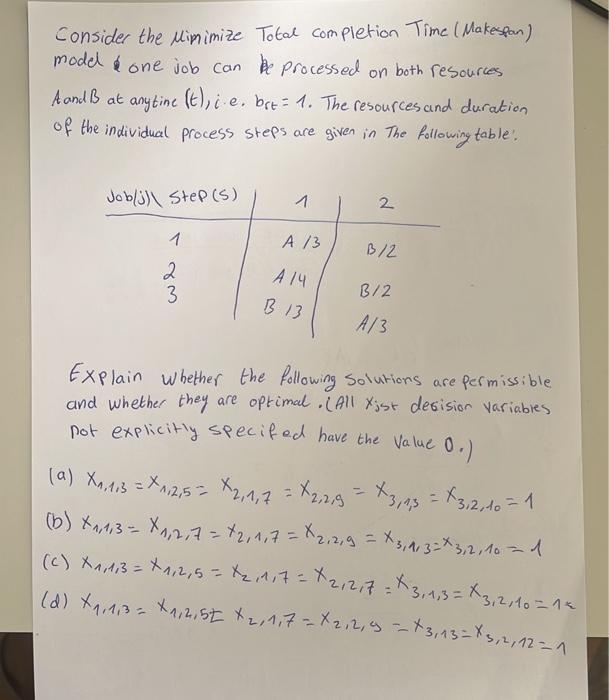 Consider the Minimize Total completion Time (Makespan)
model one job can be processed on both resources
A and B at anytime (t), i.e. brt = 1. The resources and duration
of the individual process steps are given in The following table:
Job(j)\ Step(s) 1 2
1 A/3 B/2
2 A/4 B/2
3 B/3 A/3
Explain whether the following Solutions are permissible
and whether they are optimal. (All Xjst decision variables
not explicitly specified have the Value 0.)
(a) X1,1,3 = X1,2,5 = X2,1,7 = X2,2,9 = X3,1,3 = X3,2,10 = 1
(b) X1,1,3 = X1,2,7 = X2,1,7 = X2,2,9 = X3,1,3 = X3,2,10 = 1
(c) X1,1,3 = X1,2,5 = X2,1,7 = X2,2,7 = X3,1,3 = X3,2,10 = 1
(d) X1,1,3 = X1,2,5 = X2,1,7 = X2,2,9 = X3,1,3 = X3,2,12 = 1